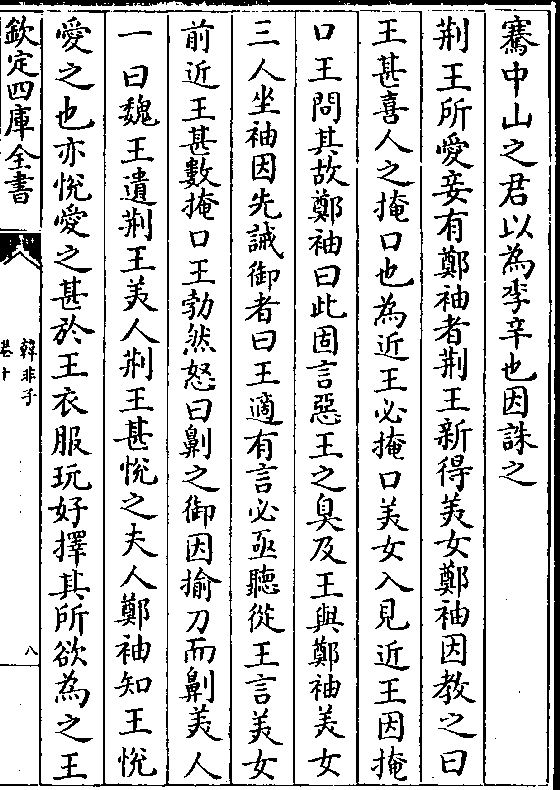 騫中山之君以為李辛也因誅之
荆王所愛妾有鄭袖者荆王新得美女鄭袖因教之曰
王甚喜人之掩口也為近王必掩口美女入見近王因掩
口王問其故鄭袖曰此固言惡王之臭及王與鄭袖美女
三人坐袖因先誡御者曰王適有言必亟聽從王言美女
前近王甚數掩口王勃然怒曰劓之御因揄刀而劓美人
一曰魏王遺荆王美人荆王甚悅之夫人鄭袖知王悅
愛之也亦悅愛之甚於王衣服玩好擇其所欲為之王
欽定四庫全書
韓非子
卷十
八